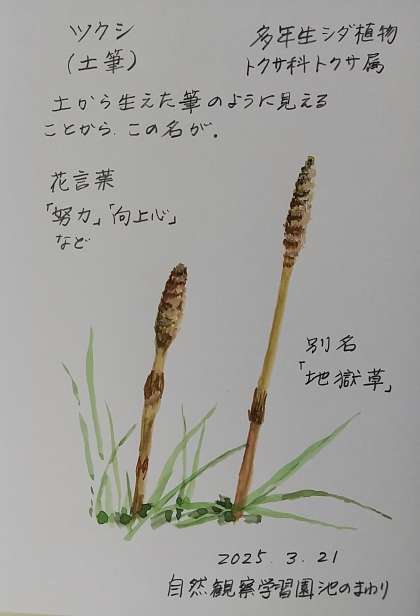 ツクシ
(土筆)
多年生シダ植物
トクサ科トクサ属
土から生えた筆のように見える
ことから、この名が。
花言葉
「努力」「向上心」
など
別名
「地獄草」
2025. 3. 21
自然観察学習園池のまわり